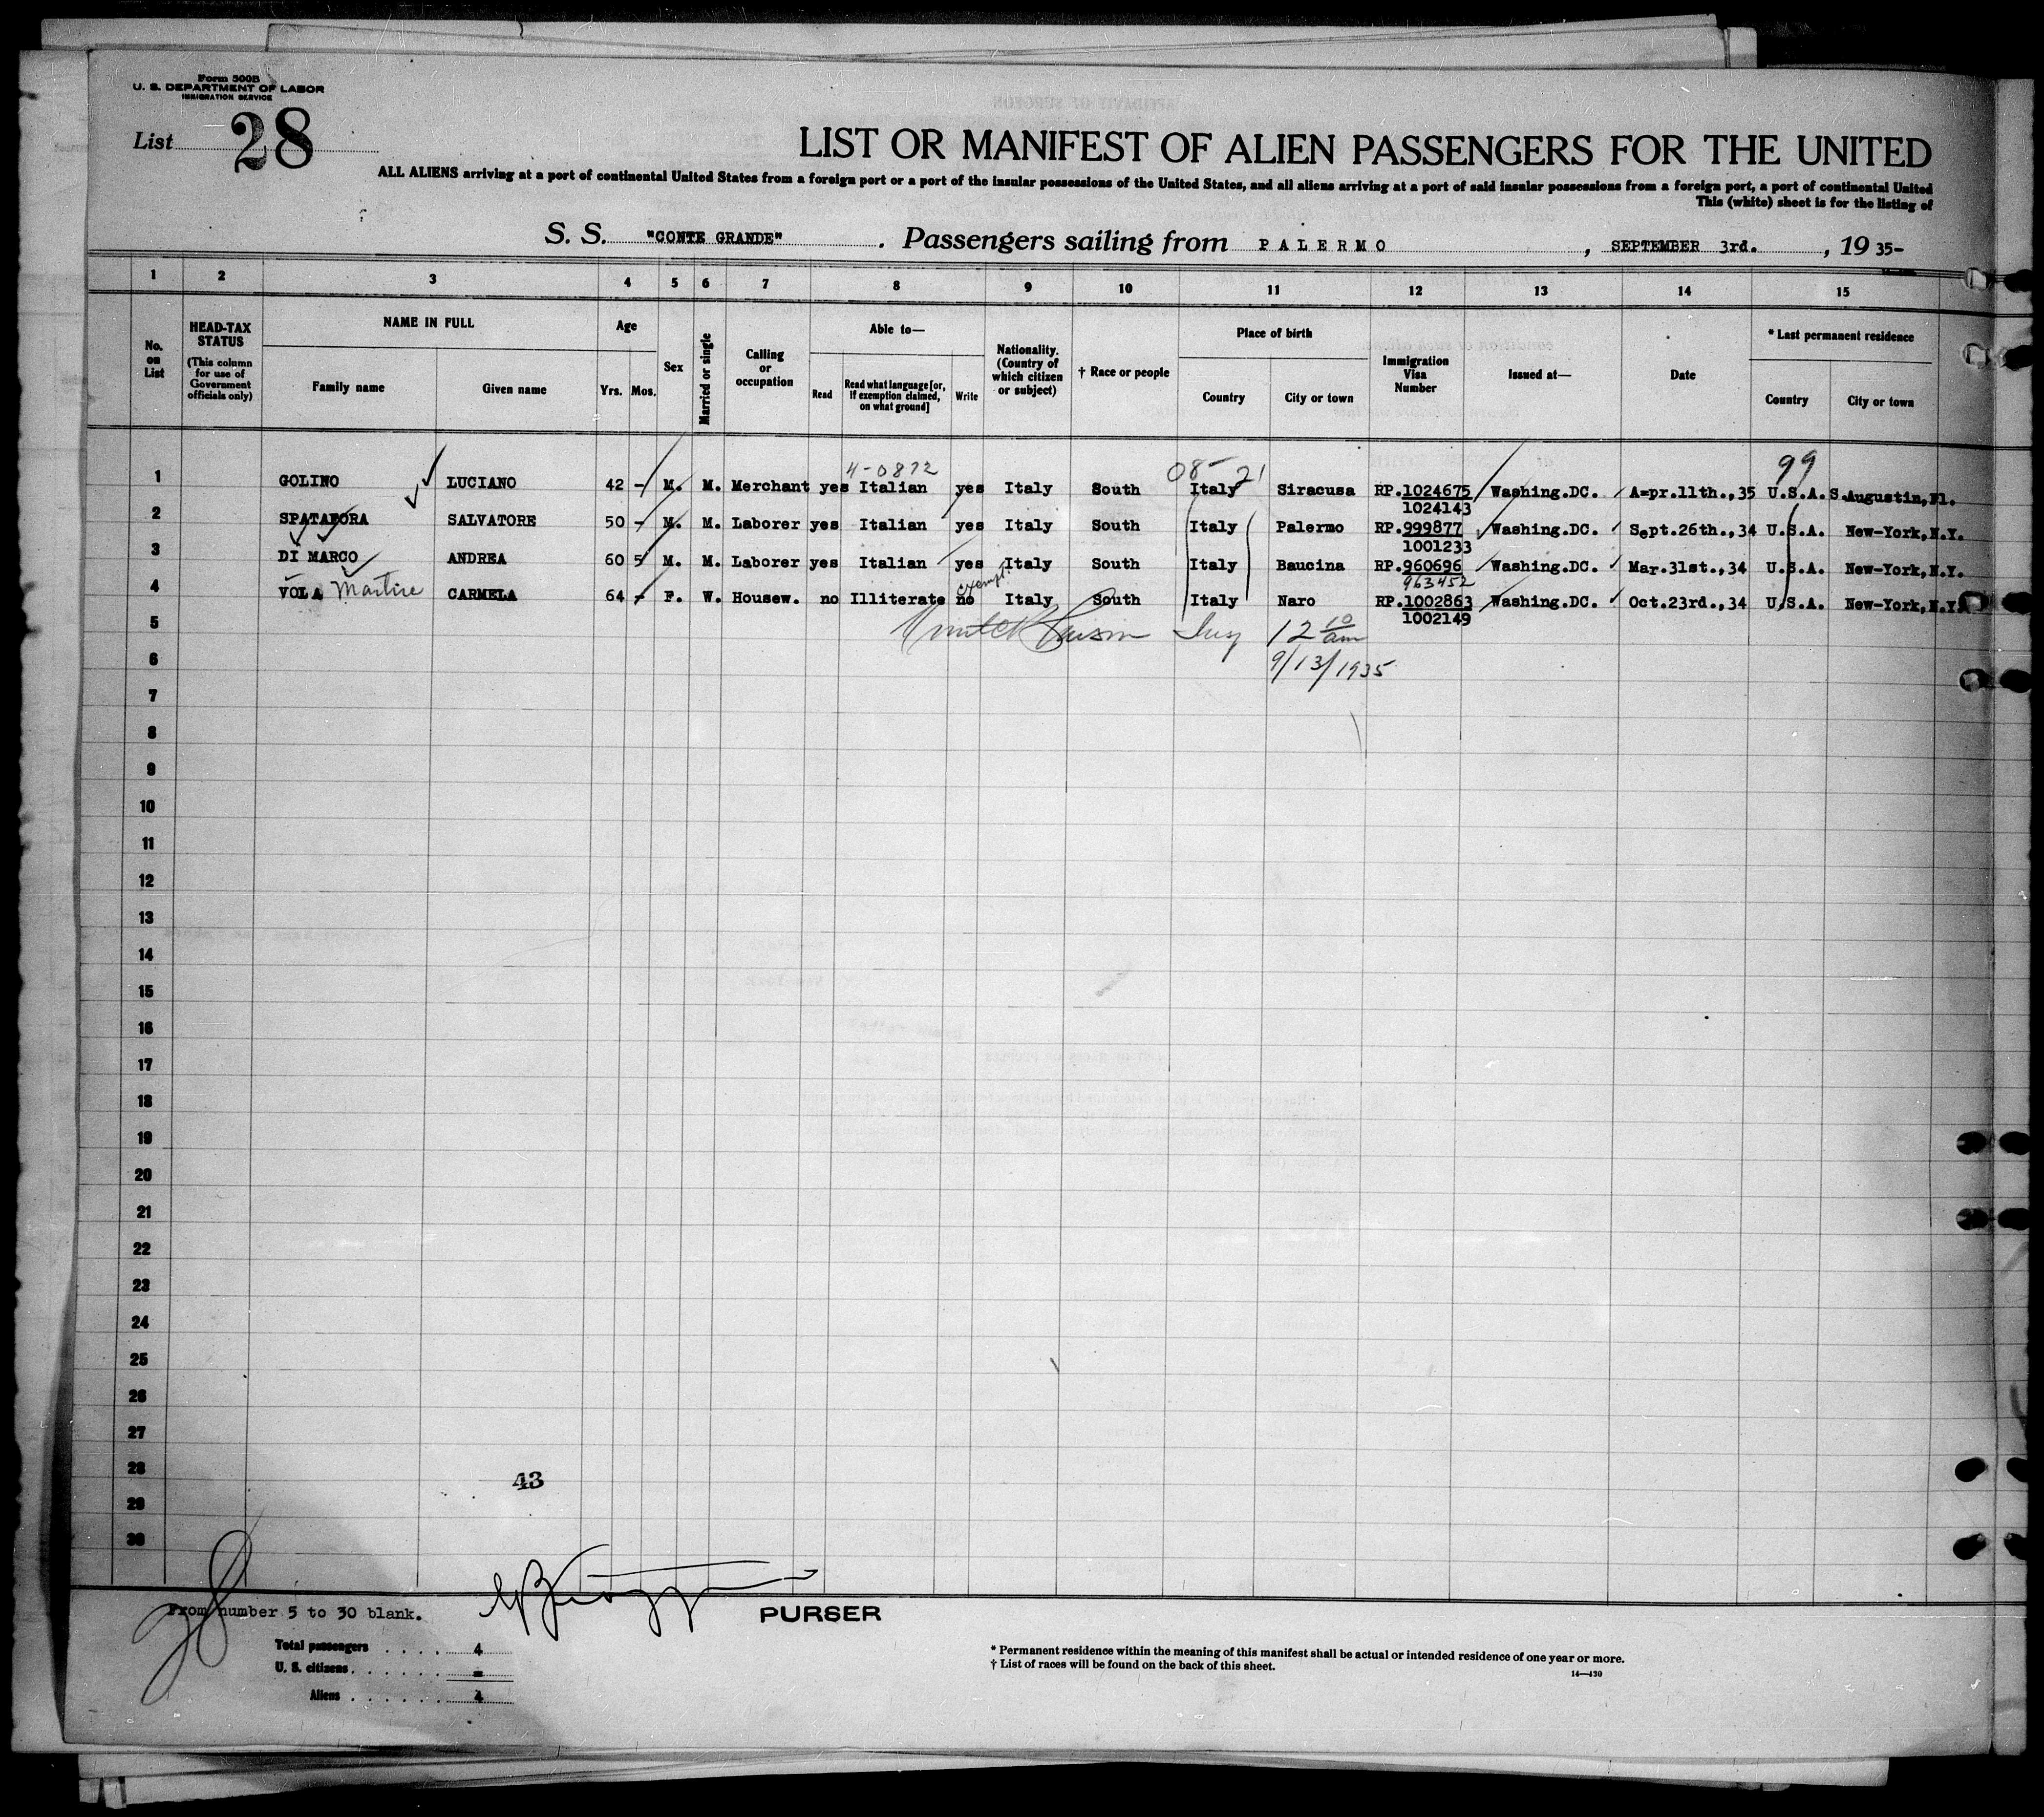 Form 500B
U. S. DEPARTMENT OF LABOR
IMMIGRATION SERVICE
List 28
LIST OR MANIFEST OF ALIEN PASSENGERS FOR THE UNITED
ALL ALIENS arriving at a port of continental United States from a foreign port or a port of the insular possessions of the United States, and all aliens arriving at a port of said insular possessions from a foreign port, a port of continental United
This (white) sheet is for the listing of
S. S. "CONTE GRANDE" . Passengers sailing from PALERMO , SEPTEMBER 3rd. , 19 35-
1 2 3 4 5 6 7 8 9 10 11 12 13 14 15
No. on List
HEAD-TAX STATUS (This column for use of Government officials only)
NAME IN FULL
Family name Given name
Age
Yrs. Mos.
Sex
Married or single
Calling or occupation
Able to—
Read
Read what language [or, if exemption claimed, on what ground]
Write
Nationality. (Country of which citizen or subject)
† Race or people
Place of birth
Country City or town
Immigration Visa Number
Issued at—
Date
* Last permanent residence
Country City or town
4-0872 08- 21 99
1 GOLINO LUCIANO 42 - M. M. Merchant yes Italian yes Italy South Italy Siracusa RP.1024675 Washing.DC. A=pr.11th.,35 U.S.A. S.Augustin,Fl.
1024143
2 SPATAFORA SALVATORE 50 - M. M. Laborer yes Italian yes Italy South Italy Palermo RP.999877 Washing.DC. Sept.26th.,34 U.S.A. New-York,N.Y.
1001233
3 DI MARCO ANDREA 60 5 M. M. Laborer yes Italian yes Italy South Italy Baucina RP.960696 Washing.DC. Mar.31st.,34 U.S.A. New-York,N.Y.
963452
exempt
4 VOLA Martire CARMELA 64 - F. W. Housew. no Illiterate no Italy South Italy Naro RP.1002863 Washing.DC. Oct.23rd.,34 U.S.A. New-York,N.Y.
1002149
5 12 10 am
6 9/13/1935
7
8
9
10
11
12
13
14
15
16
17
18
19
20
21
22
23
24
25
26
27
28
43
29
30
28
From number 5 to 30 blank.
PURSER
Total passengers . . . . 4
U. S. citizens . . . . . . =
Aliens . . . . . . 4
* Permanent residence within the meaning of this manifest shall be actual or intended residence of one year or more.
† List of races will be found on the back of this sheet.
14—430